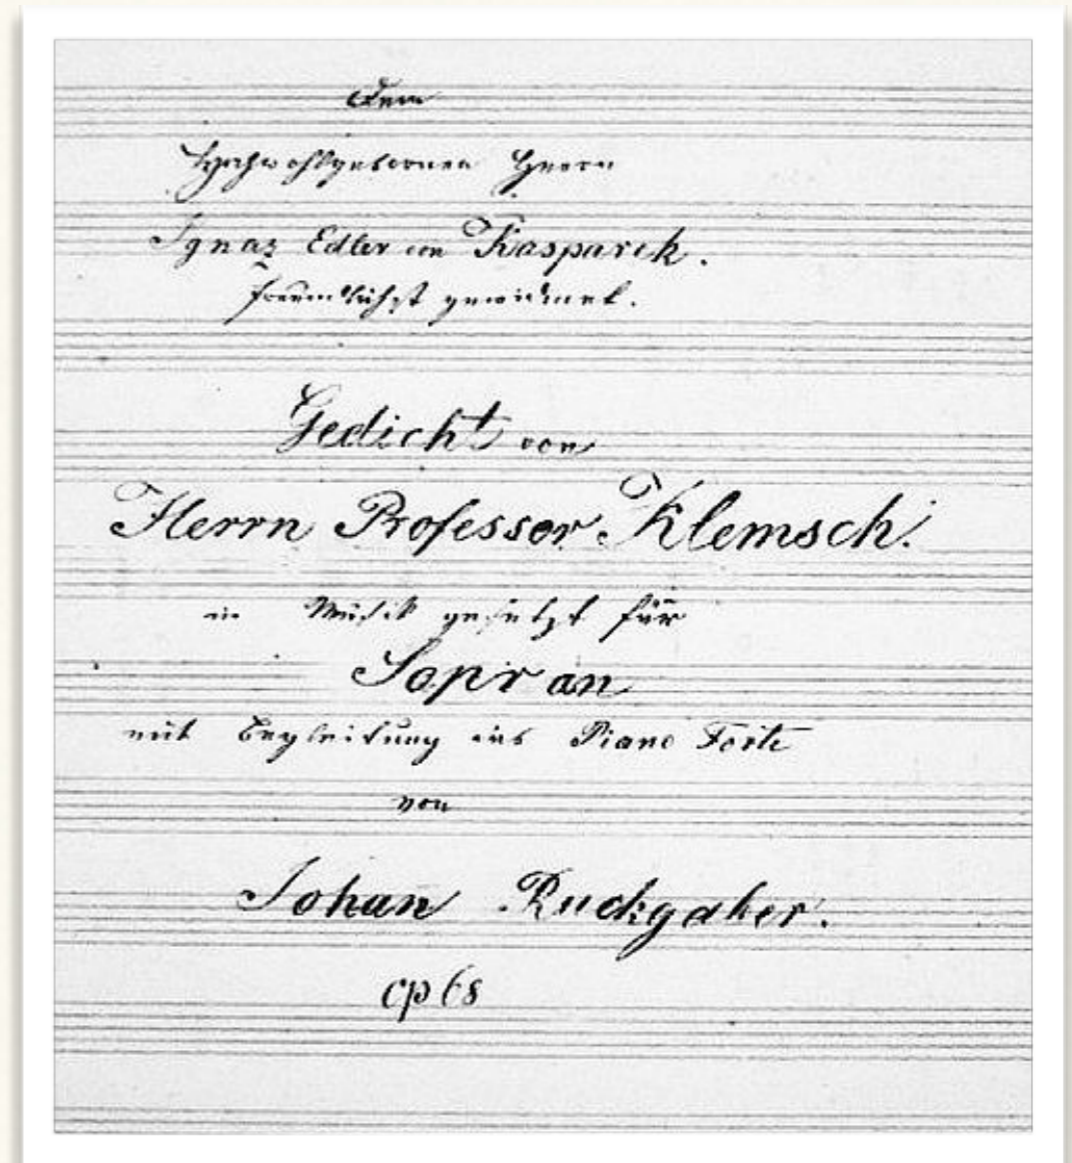 Dem
Hochwohlgebornen Herrn
Ignaz Edler von Kasparek.
freundlichst gewidmet.
Gedicht von
Herrn Professor Klemsch.
in Musik gesetzt für
Sopran
mit Begleitung des Piano Forte
von
Johan Ruckgaber.
op 68